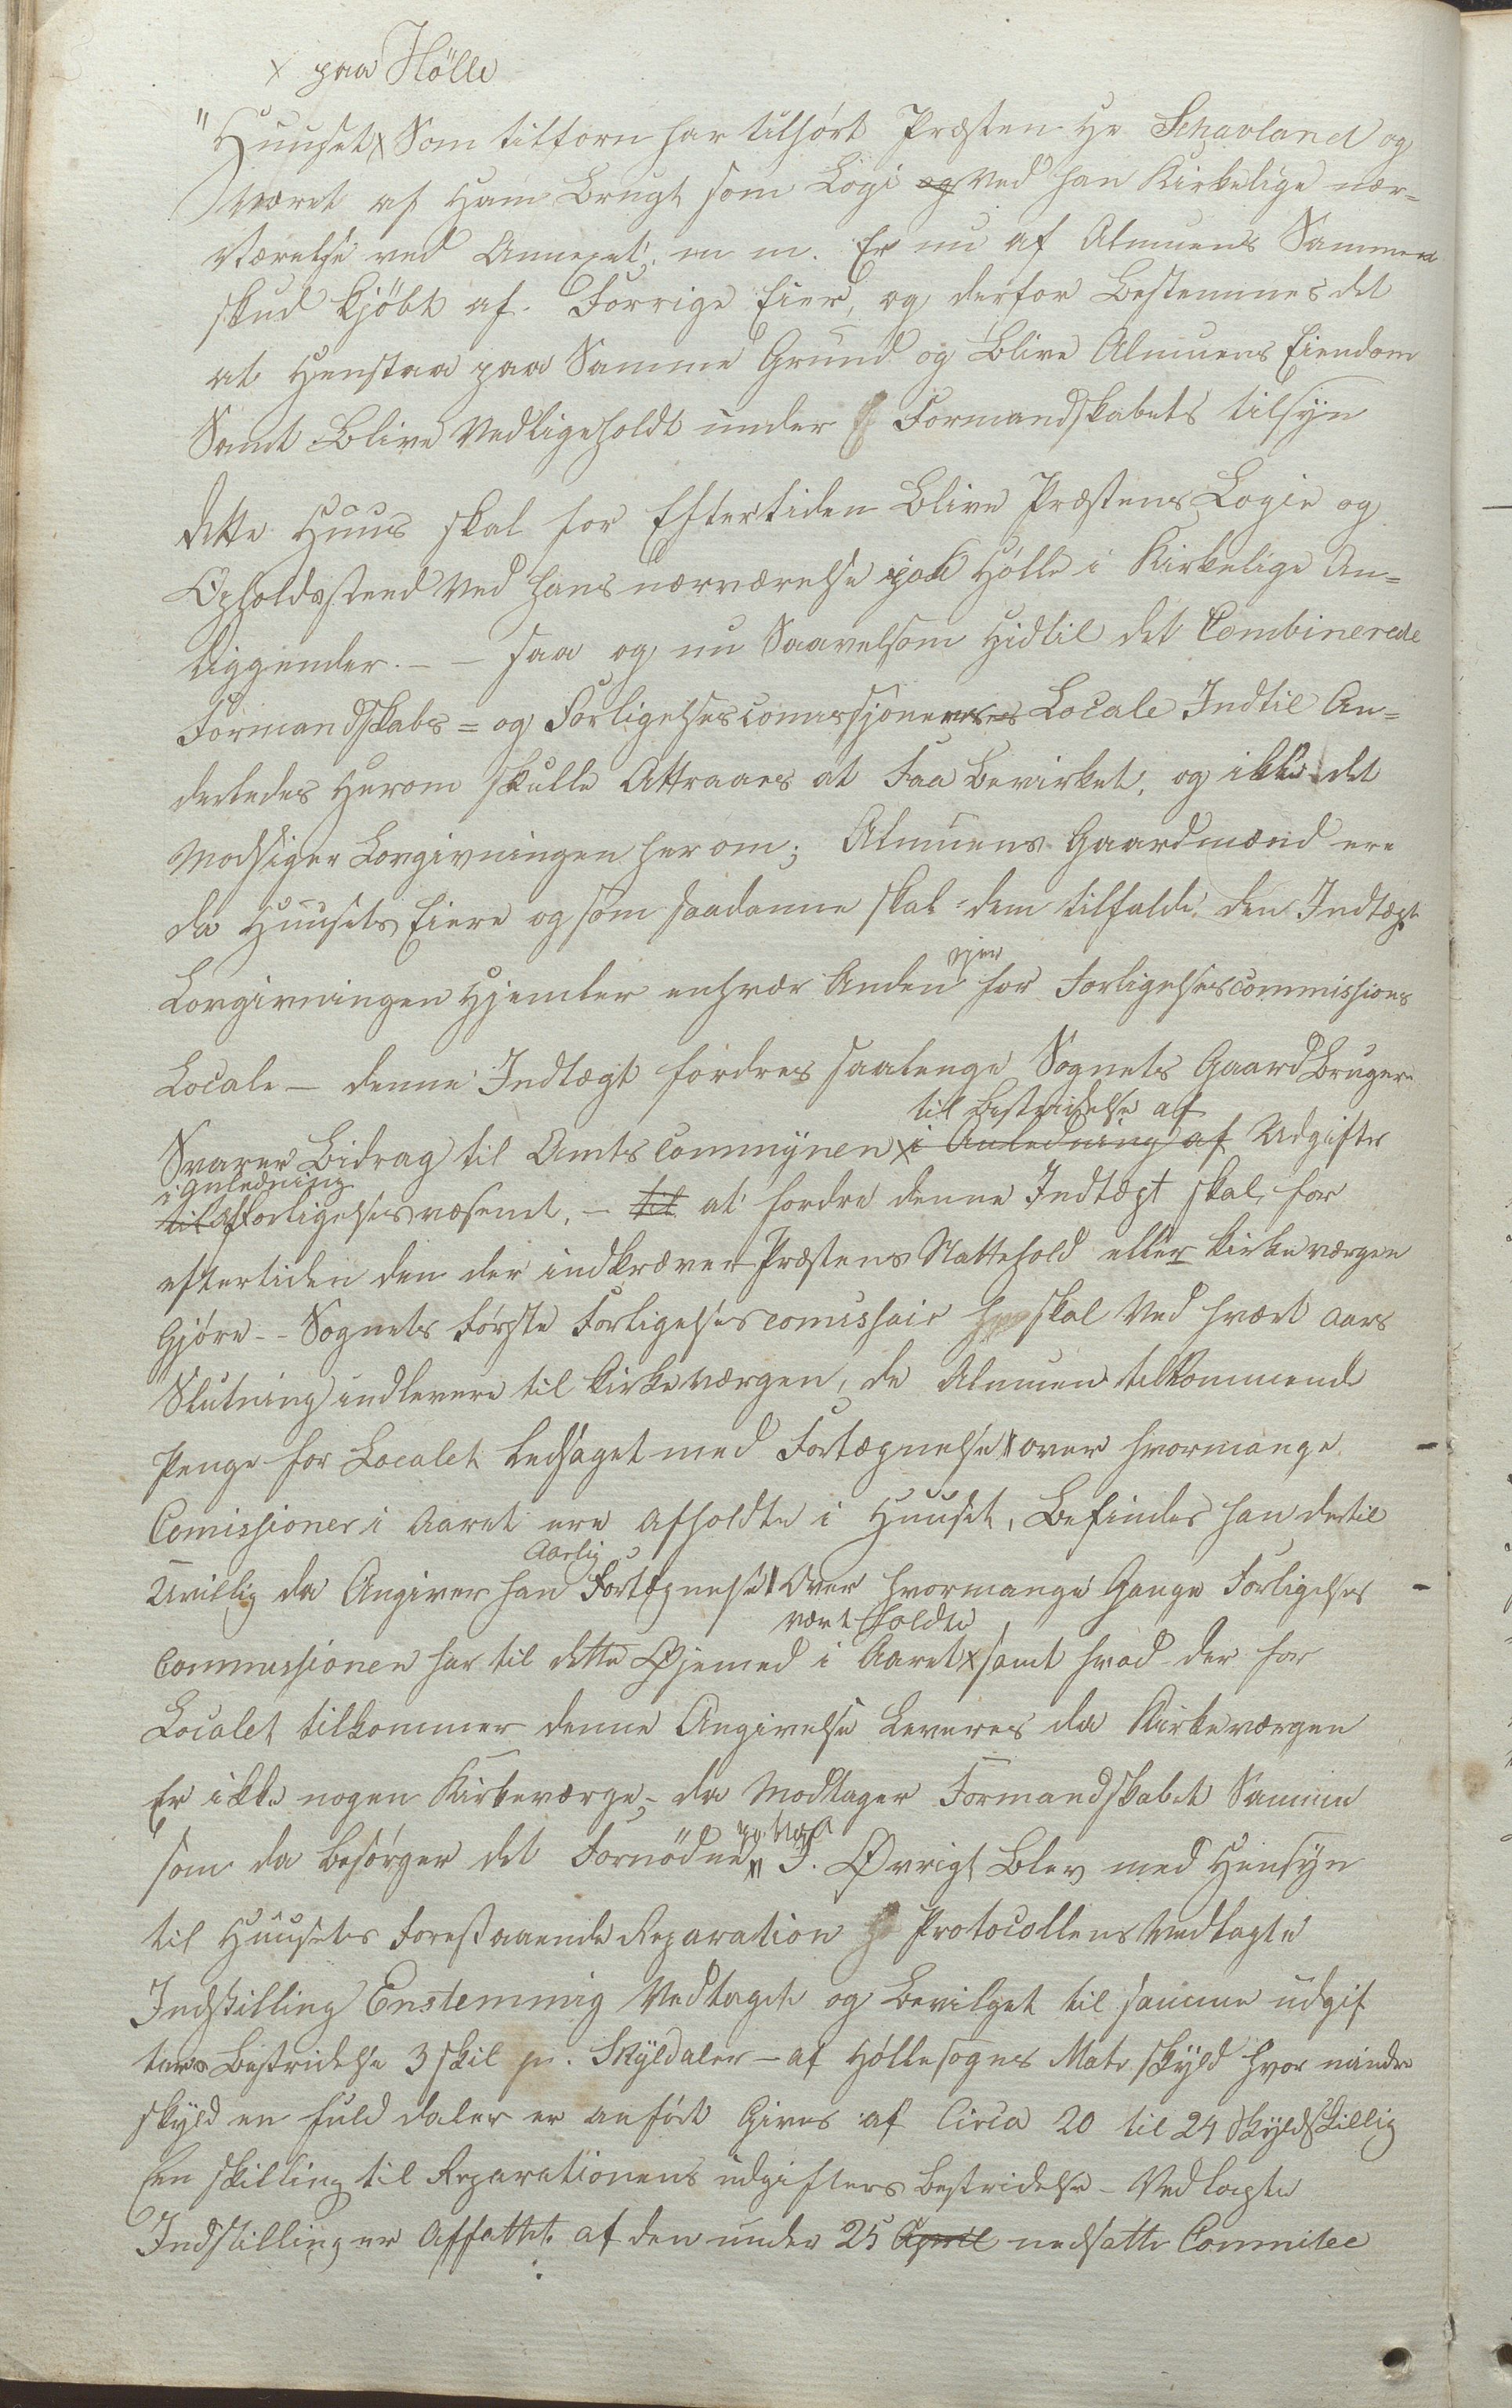 x paa Hölle
"Huuset x Som tilforn har tilhørt Præsten Hr Schavland og
Været af Ham Brugt som Logi og Ved han Kirkelige nær-
Værelse ved Annexet, m m. Er nu af Almuens Sammen
skud kjöbt af Forrige Eier, og derfor Bestemmes det
at Henstaa paa Samme Grund og Blive Almuens Eiendom
Samt Blive Vedligeholdt under Formandskabets tilsyn
dette Huus skal for Eftertiden Blive Præstens Logie og
Opholdssteed Ved hans nærværelse paa Hølle i Kirkelige An-
liggender. — — saa og nu Saavelsom Hidtil det Combinerede
Formandskabs = og Forligelsescomissjoners Locale Indtil An-
derledes Herom skulle Attraaes at Faa Bevirket, og ikke det
Modsiger Lovgivningen herom; Almuens Gaardmænd ere
da Huusets Eiere og som saadanne skal dem tilfalde, den Indtægt
ejer
Lovgivningen Hjemler enhver Anden for Forligelsescommissions
Locale — denne Indtægt fordres saalenge Sognets Gaard Bruger
til Bestridelse af
Svarer Bidrag til Amtscommynen x i Anledning af Udgifter
i Anledning
til af Forligelsesvæsenet, — til at fordre denne Indtægt skal for
eftertiden den der indkræver Præstens Nattehold eller kirkeværgen
Gjøre - - Sognets første Forligelsescomissair skal Ved hvert Aars
Slutning indlevere til Kirkeværgen, de Almuen tilkommende
Penge for Localet ledsaget med Fortægnelse over hvormange
Comissioner i Aaret ere afholdte i Huuset, Befindes han dertil
Aarlig
Uvillig da Angiver han Fortægnelse Over hvormange Gange Forligelses
vært holdte
Commissionen har til dette Øjemed i Aaret x samt hvad der for
Localet tilkommer denne Angivelse Leveres da Kirkeværgen
Er ikke nogen Kirkeværge, — da Modtager Formandskabet Samme
som da besørger det Fornödne I. Øvrigt Blev med Hensyn
til Huusets Forestaaende Reparation Protocollens Vedlagte
Indstilling Enstemmig Vedtaget og Bevilget til samme udgif
ters Bestridelse 3 skil pr. Skyldaler — af Höllesogns Matr. skyld hvor mindre
skyld en fuld daler er anført Gives af Circa 20 til 24 skyldskillig
Een skilling til Reparationens udgifters Bestridelse — Vedlagte
Indstilling er Affattet af den under 25 April nedsatte Commitee